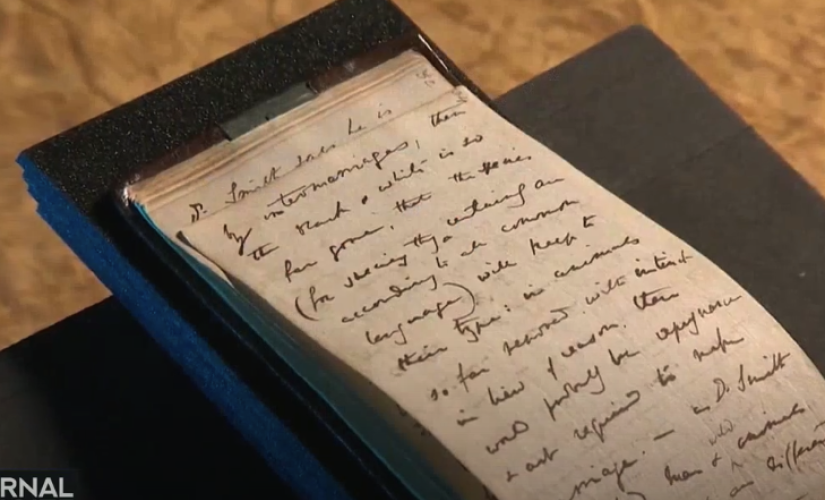 Dr. Smith says he is
by intermarriages, then
the black & white is so
far gone, that the species
(for species they certainly are
according to all common
language) will keep to
their type: in animals
so far removed with instinct
in lieu of reason, there
would probably be repugnance
& art required to make
marriage. — as Dr. Smith
man & animals
different
RNAL